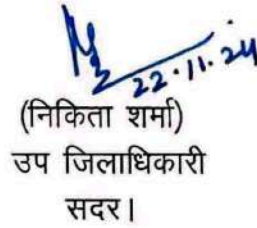 22.11.24
(निकिता शर्मा)
उप जिलाधिकारी
सदर।